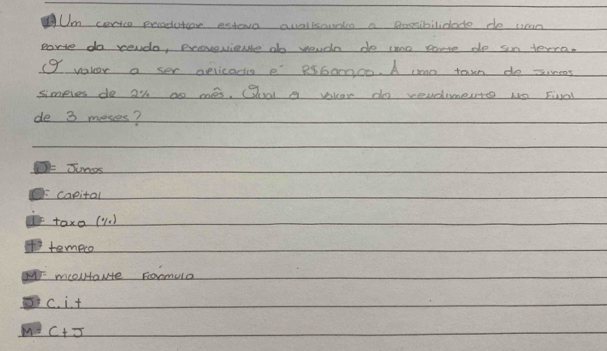 1) Um certo produtor estava analisando a possibilidade de uma
parte da renda, proveniente da venda de uma parte de sua terra.
O valor a ser aplicado é R$ A uma taxa de juros
simples de 2% ao mês. Qual o valor do rendimento no final
de 3 meses?
J= Juros
C= Capital
i= taxa (%)
t= tempo
M= montante Fórmula
J= C.i.t
M= C+J